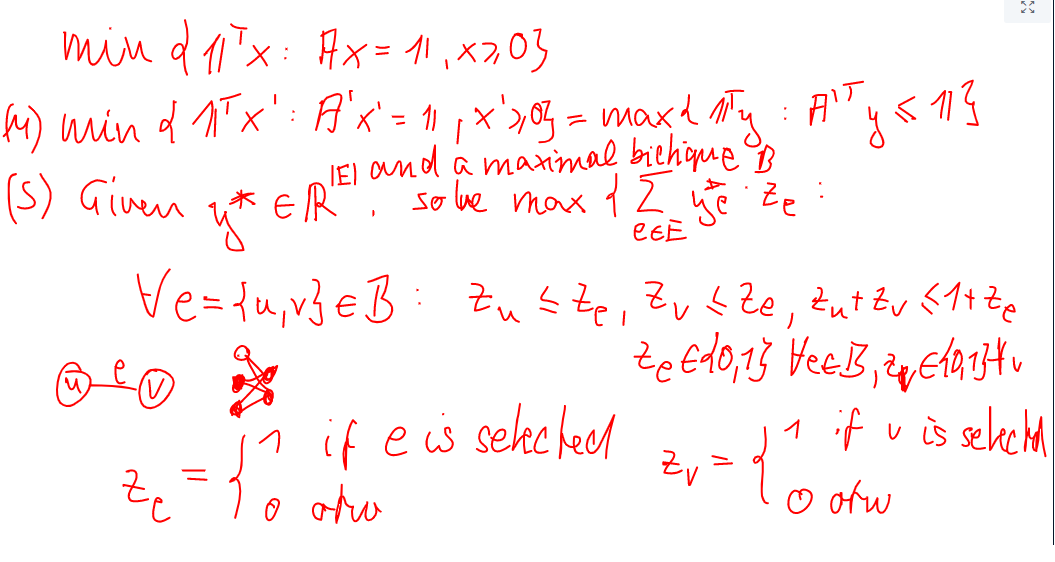 min { 𝟙ᵀx : Ax = 𝟙, x ≥ 0}
(M) min { 𝟙ᵀx' : A'x' = 𝟙, x' ≥ 0} = max { 𝟙ᵀy : A'ᵀy ≤ 𝟙}
and a maximal biclique B
(S) Given y* ∈ ℝ^|E|, solve max { Σ_{e∈E} y*_e · z_e :
∀e = {u,v} ∈ B : z_u ≤ z_e, z_v ≤ z_e, z_u + z_v ≤ 1 + z_e
z_e ∈ {0,1} ∀e∈B, z_v ∈ {0,1} ∀v
u e v
z_e = { 1 if e is selected
0 otw
z_v = { 1 if v is selected
0 otw